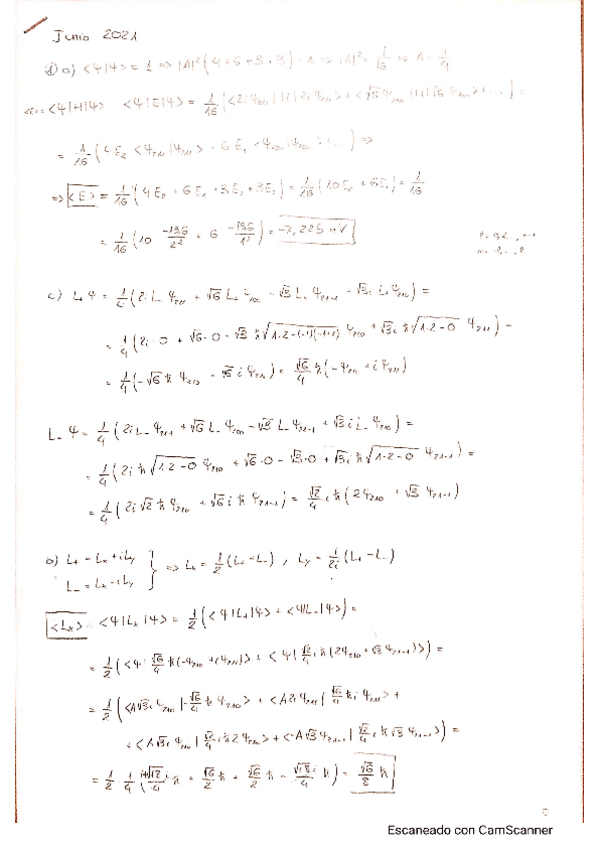 Junio 2021
1) a) <Ψ|Ψ> = 1 => |A|² (4+6+3+3) = 1 => |A|² = 1/16 => A = 1/4
<Ψ|H|Ψ> = <Ψ|E|Ψ> = 1/16 (<2i Ψ₂₁₁|H|2i Ψ₂₁₁> + <√6 Ψ₁₀₀|H|√6 Ψ₁₀₀> + ...) =
= 1/16 (4E₂ <Ψ₂₁₁|Ψ₂₁₁> + 6E₁ <Ψ₁₀₀|Ψ₁₀₀> + ...) =>
=> <E> = 1/16 (4E₂ + 6E₁ + 3E₂ + 3E₂) = 1/16 (10E₂ + 6E₁) = 1/16
= 1/16 (10 -13,6/2² + 6 -13,6/1²) = -7,225 eV
c) L₊Ψ = 1/4 (2i L₊ Ψ₂₁₁ + √6 L₊ Ψ₁₀₀ - √3 L₊ Ψ₂₁₋₁ + √3 i L₊ Ψ₂₁₀) =
= 1/4 (2i·0 + √6·0 - √3 ħ √(1·2-(-1)(-1+1)) Ψ₂₁₀ + √3 i ħ √(1·2-0) Ψ₂₁₁) =
= 1/4 (-√6 ħ Ψ₂₁₀ + √6 i Ψ₂₁₁) = √6/4 ħ (-Ψ₂₁₀ + i Ψ₂₁₁)
L₋Ψ = 1/4 (2i L₋ Ψ₂₁₁ + √6 L₋ Ψ₁₀₀ - √3 L₋ Ψ₂₁₋₁ + √3 i L₋ Ψ₂₁₀) =
= 1/4 (2i ħ √(1·2-0) Ψ₂₁₀ + √6·0 - √3·0 + √3 i ħ √(1·2-0) Ψ₂₁₋₁) =
= 1/4 (2i √2 ħ Ψ₂₁₀ + √6 i ħ Ψ₂₁₋₁) = √2/4 i ħ (2Ψ₂₁₀ + √3 Ψ₂₁₋₁)
b) L₊ = Lₓ + iLy } => Lₓ = 1/2 (L₊ + L₋), Ly = 1/2i (L₊ - L₋)
L₋ = Lₓ - iLy
<Lₓ> = <Ψ|Lₓ|Ψ> = 1/2 (<Ψ|L₊|Ψ> + <Ψ|L₋|Ψ>) =
= 1/2 (<Ψ| √6/4 ħ (-Ψ₂₁₀ + iΨ₂₁₁)> + <Ψ| √2/4 i ħ (2Ψ₂₁₀ + √3 Ψ₂₁₋₁)>) =
= 1/2 (<A√3 i Ψ₂₁₀|-√6/4 ħ Ψ₂₁₀> + <A2i Ψ₂₁₁| √6/4 ħ i Ψ₂₁₁> +
+ <A√3 i Ψ₂₁₀| √2/4 i ħ 2Ψ₂₁₀> + <-A√3 Ψ₂₁₋₁| √2/4 i ħ √3 Ψ₂₁₋₁>) =
Escaneado con CamScanner